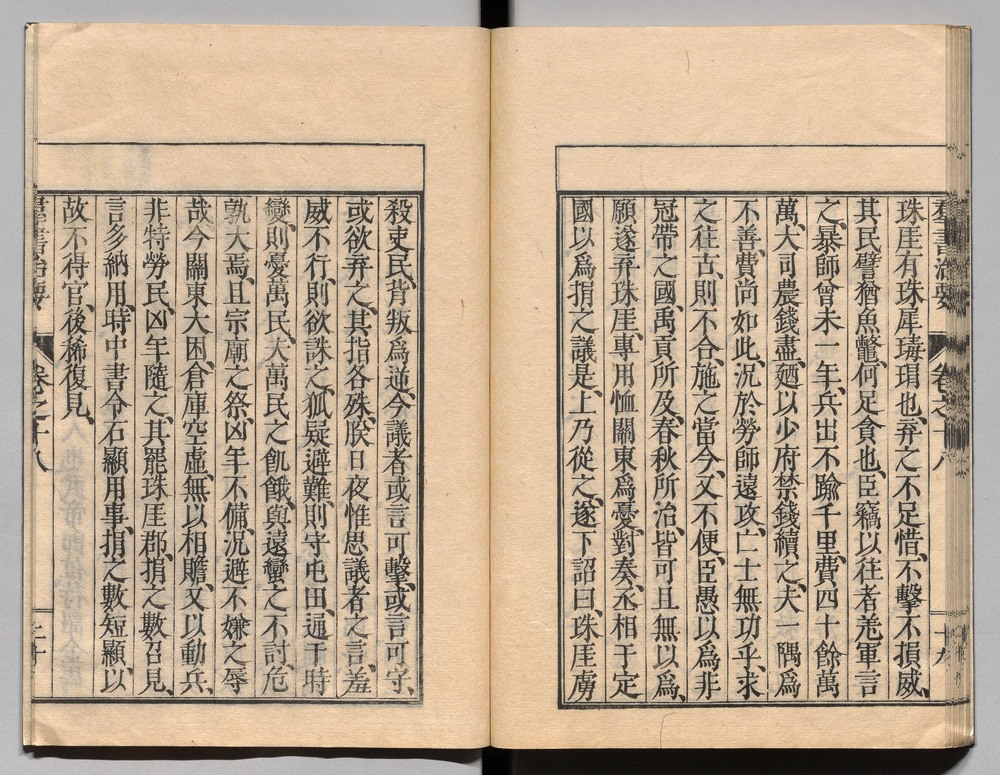 羣書治要 卷之十八 十九
珠厓有珠犀瑇瑁也、弃之不足惜、不擊不損威、
其民譬猶魚鼈、何足貪也、臣竊以往者羌軍言
之、暴師曾未一年、兵出不踰千里、費四十餘萬
萬、大司農錢盡、廼以少府禁錢續之、夫一隅爲
不善、費尚如此、況於勞師遠攻、亡士無功乎、求
之往古、則不合、施之當今、又不便、臣愚以爲非
冠帶之國、禹貢所及、春秋所治、皆可且無以爲、
願遂弃珠厓、專用恤關東爲憂、對奏、丞相于定
國以爲捐之議是、上乃從之、遂下詔曰、珠厓虜
殺吏民、背叛爲逆、今議者或言可擊、或言可守、
或欲弃之、其指各殊、朕日夜惟思議者之言、羞
威不行、則欲誅之、狐疑避難、則守屯田、通于時
變、則憂萬民、夫萬民之飢餓、與遠蠻之不討、危
孰大焉、且宗廟之祭、凶年不備、況避不嫌之辱
哉、今關東大困、倉庫空虛、無以相贍、又以動兵、
非特勞民、凶年隨之、其罷珠厓郡、捐之數召見、
言多納用、時中書令石顯用事、捐之數短顯、以
故不得官、後稀復見、
羣書治要 卷之十八